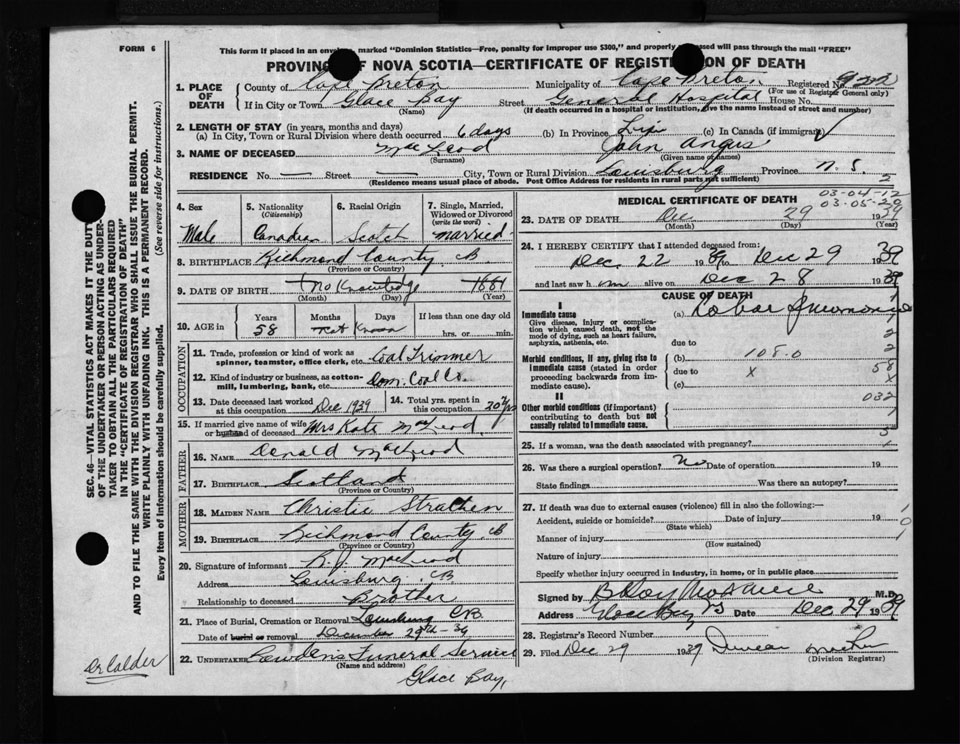 FORM 6
This form if placed in an envelope marked "Dominion Statistics—Free, penalty for improper use $300," and properly addressed will pass through the mail "FREE"
PROVINCE OF NOVA SCOTIA—CERTIFICATE OF REGISTRATION OF DEATH
1. PLACE OF DEATH County of Cape Breton Municipality of Cape Breton Registered No.
(For use of Registrar General only)
If in City or Town Glace Bay Street General Hospital House No.
(Name) (If death occurred in a hospital or institution, give the name instead of street and number)
2. LENGTH OF STAY (in years, months and days)
(a) In City, Town or Rural Division where death occurred 6 days (b) In Province Life (c) In Canada (if immigrant) ✓
3. NAME OF DECEASED MacLeod John Angus
(Surname) (Given name or names)
RESIDENCE No. — Street — City, Town or Rural Division Louisburg Province N.S.
(Residence means usual place of abode. Post Office Address for residents in rural parts not sufficient)
4. Sex Male
5. Nationality (Citizenship) Canadian
6. Racial Origin Scotch
7. Single, Married, Widowed or Divorced (write the word) Married
8. BIRTHPLACE Richmond County CB
(Province or County)
9. DATE OF BIRTH No Knowledge 1881
(Month) (Day) (Year)
10. AGE in Years 58 Months Not Days Known If less than one day old hrs. or min.
OCCUPATION
11. Trade, profession or kind of work as spinner, teamster, office clerk, etc. Coal Trimmer
12. Kind of industry or business, as cotton-mill, lumbering, bank, etc. Dom. Coal Co.
13. Date deceased last worked at this occupation Dec 1939 14. Total yrs. spent in this occupation 20 yrs
15. If married give name of wife or husband of deceased Mrs Kate MacLeod
FATHER
16. NAME Donald MacLeod
17. BIRTHPLACE Scotland
(Province or Country)
MOTHER
18. MAIDEN NAME Christie Strathen
19. BIRTHPLACE Richmond County CB
(Province or Country)
20. Signature of informant MacLeod
Address Louisburg CB
Relationship to deceased Brother
21. Place of Burial, Cremation or Removal Louisburg CB
Date of burial or removal December 29th - 39
22. UNDERTAKER Funeral Service
(Name and address)
Glace Bay,
MEDICAL CERTIFICATE OF DEATH
03-04-12
03-05-20
23. DATE OF DEATH Dec 29 1939
(Month) (Day) (Year)
24. I HEREBY CERTIFY that I attended deceased from:
Dec 22 1939 to Dec 29 1939
and last saw him alive on Dec 28 1939
CAUSE OF DEATH
I
Immediate cause
Give disease, injury or complication which caused death, not the mode of dying, such as heart failure, asphyxia, asthenia, etc.
(a) Lobar Pneumonia
due to
Morbid conditions, if any, giving rise to immediate cause (stated in order proceeding backwards from immediate cause).
(b) 108.0
due to x
(c)
58
x
032
II
Other morbid conditions (if important) contributing to death but not causally related to immediate cause.
25. If a woman, was the death associated with pregnancy?
26. Was there a surgical operation? No Date of operation 19
State findings Was there an autopsy?
27. If death was due to external causes (violence) fill in also the following:—
Accident, suicide or homicide? Date of injury 19
(State which)
Manner of injury
(How sustained)
Nature of injury
Specify whether injury occurred in industry, in home, or in public place
Signed by M.D.
Address Glace Bay NS Date Dec 29 1939
28. Registrar's Record Number
29. Filed Dec 29 1939 Duncan
(Division Registrar)
SEC. 46—VITAL STATISTICS ACT MAKES IT THE DUTY
OF THE UNDERTAKER OR PERSON ACTING AS UNDER-
TAKER TO OBTAIN ALL THE PARTICULARS REQUIRED
IN THE "CERTIFICATE OF REGISTRATION OF DEATH"
AND TO FILE THE SAME WITH THE DIVISION REGISTRAR WHO SHALL ISSUE THE BURIAL PERMIT.
WRITE PLAINLY WITH UNFADING INK. THIS IS A PERMANENT RECORD.
Every item of information should be carefully supplied. (See reverse side for instructions.)
Dr Calder